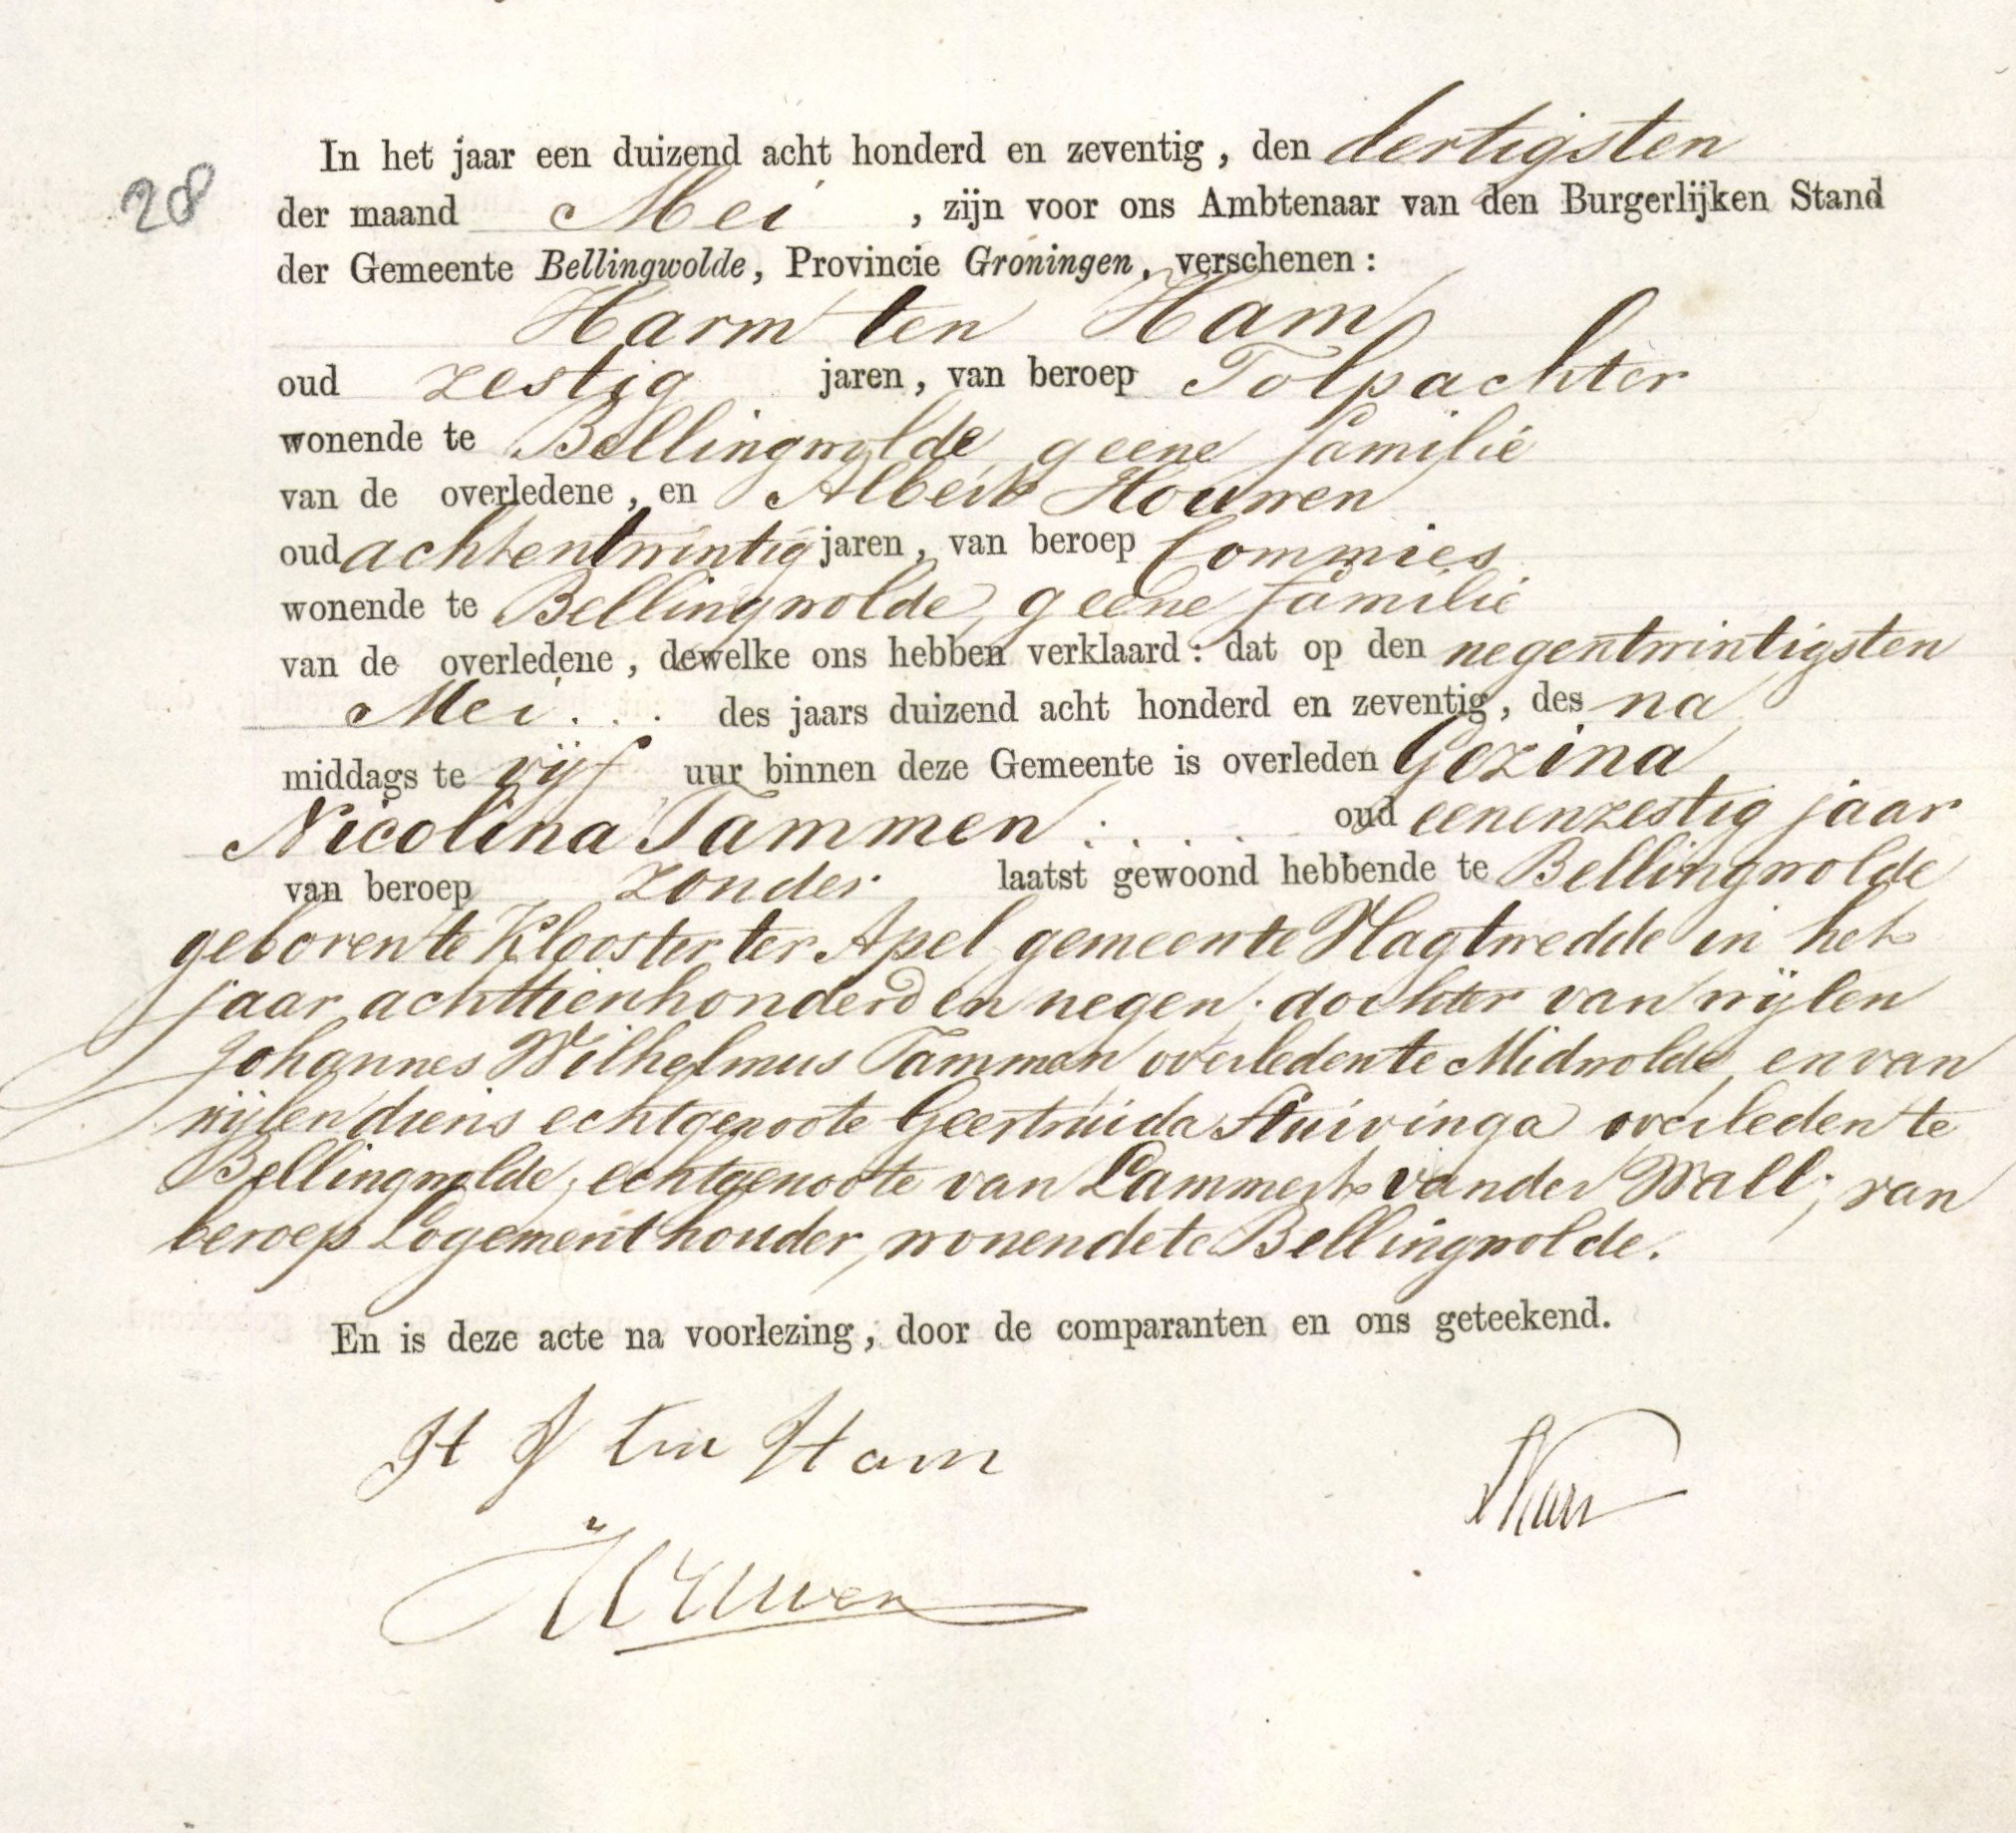 28
In het jaar een duizend acht honderd en zeventig, den dertigsten
der maand Mei, zijn voor ons Ambtenaar van den Burgerlijken Stand
der Gemeente Bellingwolde, Provincie Groningen, verschenen:
Harm ten Ham
oud zestig jaren, van beroep Tolpachter
wonende te Bellingwolde geene familie
van de overledene, en Albert Houwen
oud achtentwintig jaren, van beroep Commies
wonende te Bellingwolde, geene familie
van de overledene, dewelke ons hebben verklaard: dat op den negentwintigsten
Mei . . . des jaars duizend acht honderd en zeventig, des na
middags te vijf uur binnen deze Gemeente is overleden Gezina
Nicolina Tammen . . . . . oud eenenzestig jaar
van beroep zonder laatst gewoond hebbende te Bellingwolde
geboren te Klooster ter Apel gemeente Vlagtwedde in het
jaar achttienhonderd en negen; dochter van wijlen
Johannes Wilhelmus Tammen overleden te Midwolde, en van
wijlen diens echtgenoote Geertruida Stuivinga overleden te
Bellingwolde; echtgenoote van Lammert van der Wall; van
beroep Logementhouder, wonende te Bellingwolde.
En is deze acte na voorlezing, door de comparanten en ons geteekend.
H J ten Ham
Houwen